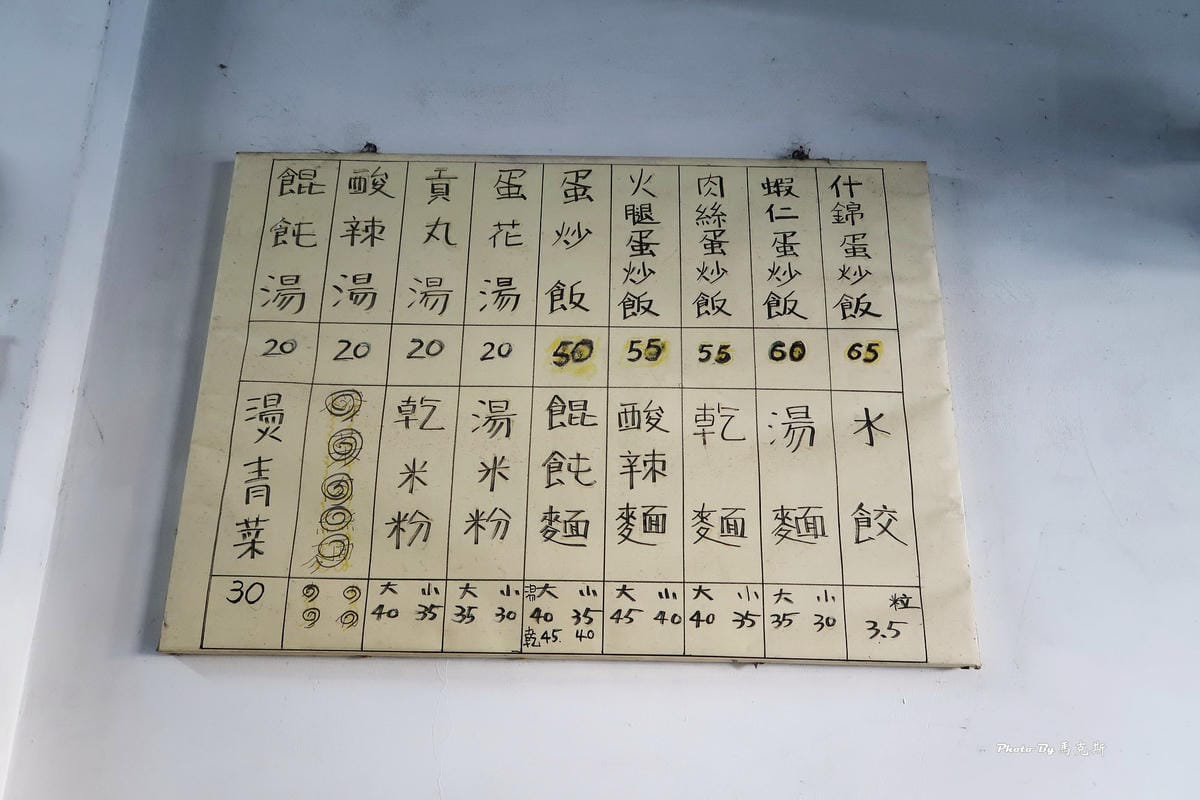 什錦蛋炒飯
65
蝦仁蛋炒飯
60
肉絲蛋炒飯
55
火腿蛋炒飯
55
蛋炒飯
50
蛋花湯
20
貢丸湯
20
酸辣湯
20
餛飩湯
20
水餃
粒
3.5
湯麵
大 小
35 30
乾麵
大 小
40 35
酸辣麵
大 小
45 40
餛飩麵
湯大 小
40 35
乾45. 40
湯米粉
大 小
35 30
乾米粉
大 小
40 35
燙青菜
30
Photo By 馬克斯